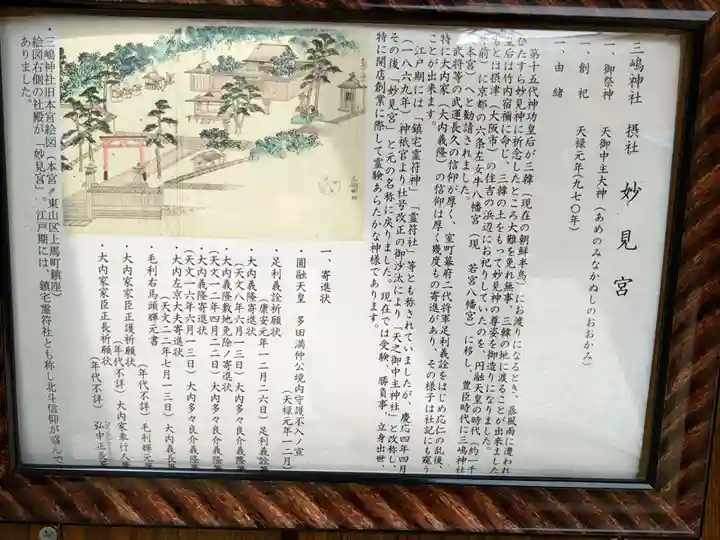 三嶋神社 摂社 妙見宮
一、御祭神 天御中主大神(あめのみなかぬしのおおかみ)
一、創祀 天禄元年(九七〇年)
一、由緒
第十五代神功皇后が三韓(現在の朝鮮半島)にお渡りになるとき、暴風雨に遭われ
ひたすら妙見神に祈念したところ大難を免れ無事、三韓の地に渡ることが出来ました
皇后は竹内宿禰に命じ、三韓の土をもって妙見神の尊姿を御造りになりました。
もとは摂津(大阪市)の住吉の浜辺にお祀りしていたのを、円融天皇の時代(約一千
年前)に京都の六条左女牛八幡宮(現 若宮八幡宮)に移し、豊臣時代に三嶋神社
(本宮)へと勧請されました。
武将等の武運長久の信仰が厚く、室町幕府二代将軍足利義詮をはじめ応仁の乱後、
特に大内家(大内義隆)の信仰は厚く幾度もの寄進があり、その様子は社記にも窺う
ことが出来ます。
江戸期には「鎮宅霊符神」「霊符社」等とも称されていましたが、慶応四年四月
(一八六九年)神祇官より社号改正の御沙汰により「天之御中主神社」と改称し、
その後「妙見宮」と元の名称に戻りました。現在では受験、勝負事、立身出世、
特に開店創業に際して霊験あらたかな神様であります。
一、寄進状
・圓融天皇 多田満仲公境内守護不入ノ宣
(天禄元年一二月)
・足利義詮祈願状
(康安元年一二月二六日)足利義詮
・大内義隆寄進状
(天文八年六月一三日)大内多々良義隆
・大内義隆敷地免除ノ寄進状
(天文一二年四月二二日)大内多々良介義隆
・大内義隆寄進状
(天文一六年六月一三日)大内多々良介義隆
・大内左京大夫寄進状
(天文二二年七月一三日)大内義長
・毛利右馬頭輝元書
(年代不詳)毛利輝元
・大内家家臣正護祈願状
(年代不詳)大内家奉行人
・大内家家臣正長祈願状
(年代不詳)弘中正長
・三嶋神社旧本宮絵図(本宮 東山区上馬町鎮座)
絵図右側の社殿が「妙見宮」。江戸期には、鎮宅霊符社とも称し北斗信仰が盛んで
ありました。